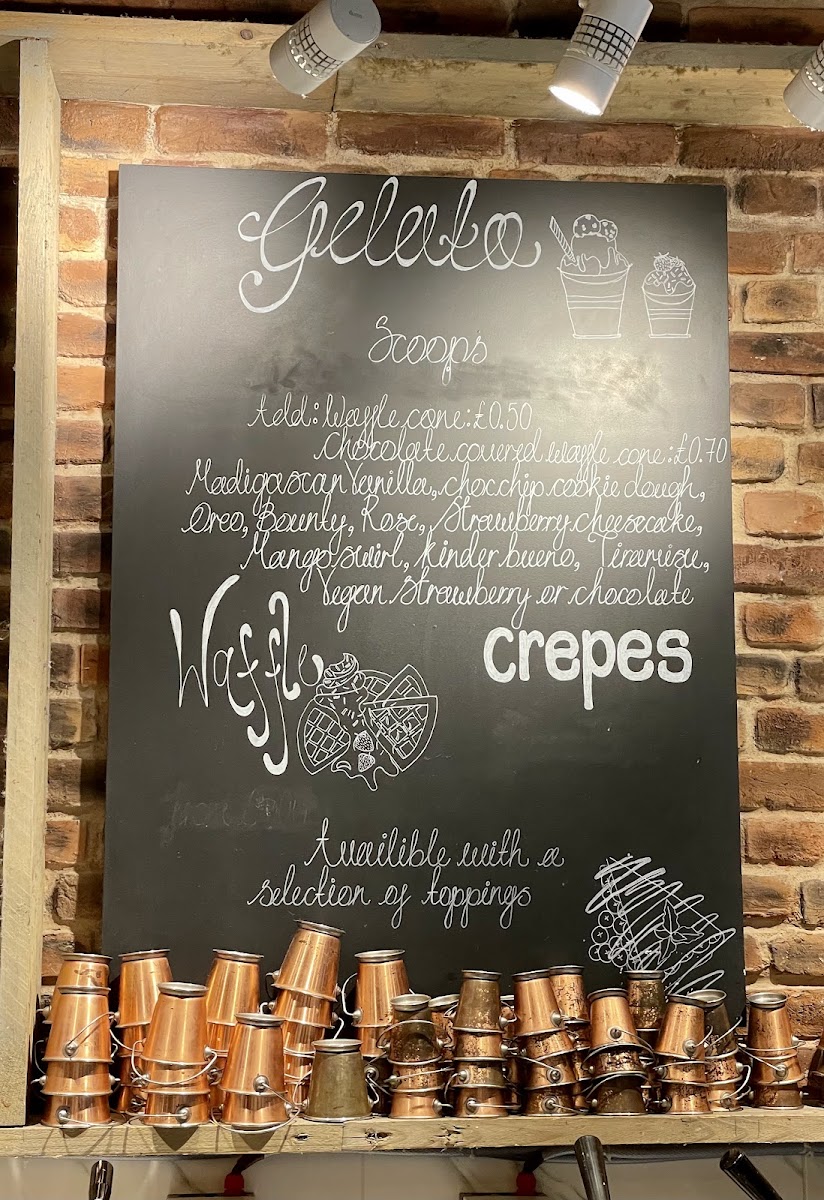 Gelato
Scoops
Add: Waffle cone: £0.50
Chocolate covered waffle cone: £0.70
Madigascan Vanilla, choc chip cookie dough,
Oreo, Bounty, Rose, Strawberry cheesecake,
Mango swirl, kinder bueno, Tiramisu,
Vegan Strawberry or chocolate
Waffle
crepes
Availible with a
selection of toppings